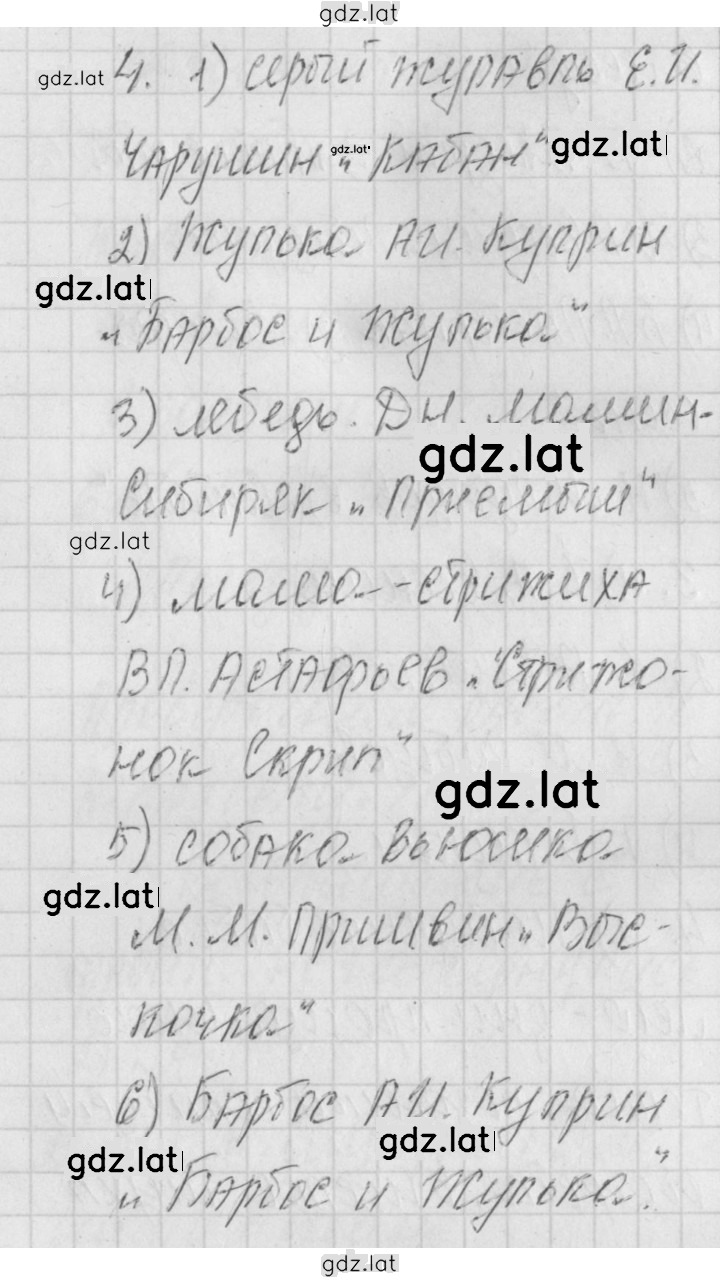 gdz.lat
gdz.lat 4. 1) серый журавль Е.И.
Чарушин gdz.lat "Кабан" gdz.lat
2) Жулька А.И. Куприн
gdz.lat
"Барбос и Жулька"
3) лебедь. Д.Н. Мамин-
gdz.lat
Сибиряк "Приемыш"
gdz.lat
4) мама-стрижиха
В.П. Астафьев "Стрижо-
нок Скрип"
gdz.lat
5) собака Вьюшка
gdz.lat
М.М. Пришвин "Выс-
кочка"
6) Барбос А.И. Куприн
gdz.lat gdz.lat
"Барбос и Жулька."
gdz.lat